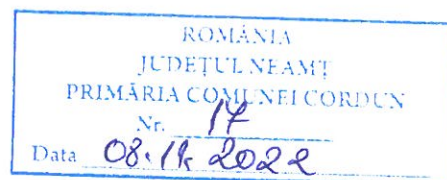 ROMÂNIA
JUDEȚUL NEAMȚ
PRIMĂRIA COMUNEI CORDUN
Nr. 17
Data 08.11.2022